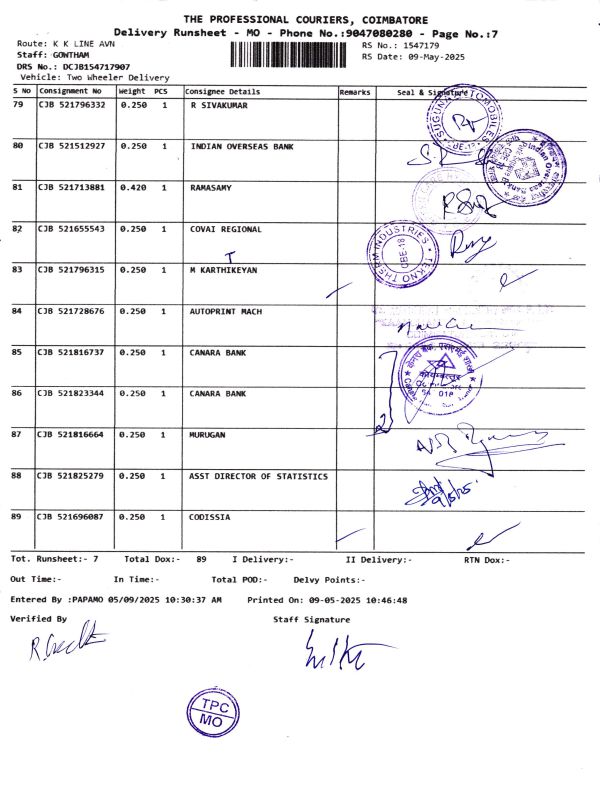 THE PROFESSIONAL COURIERS, COIMBATORE
Delivery Runsheet - MO - Phone No.:9047080280 - Page No.:7
Route: K K LINE AVN
RS No.: 1547179
Staff: GOWTHAM
RS Date: 09-May-2025
DRS No.: DCJB154717907
Vehicle: Two Wheeler Delivery
S No Consignment No Weight PCS Consignee Details Remarks Seal & Signature
79 CJB 521796332 0.250 1 R SIVAKUMAR
SUGUNA AUTOMOBILES
80 CJB 521512927 0.250 1 INDIAN OVERSEAS BANK
Indian Overseas Bank
81 CJB 521713881 0.420 1 RAMASAMY
82 CJB 521655543 0.250 1 COVAI REGIONAL
TEKNO THERM INDUSTRIES
CBE-18
T
83 CJB 521796315 0.250 1 M KARTHIKEYAN
84 CJB 521728676 0.250 1 AUTOPRINT MACH
85 CJB 521816737 0.250 1 CANARA BANK
86 CJB 521823344 0.250 1 CANARA BANK
2
87 CJB 521816664 0.250 1 MURUGAN
88 CJB 521825279 0.250 1 ASST DIRECTOR OF STATISTICS
9/5/25
89 CJB 521696087 0.250 1 CODISSIA
Tot. Runsheet:- 7 Total Dox:- 89 I Delivery:- II Delivery:- RTN Dox:-
Out Time:- In Time:- Total POD:- Delvy Points:-
Entered By :PAPAMO 05/09/2025 10:30:37 AM Printed On: 09-05-2025 10:46:48
Verified By Staff Signature
TPC
MO